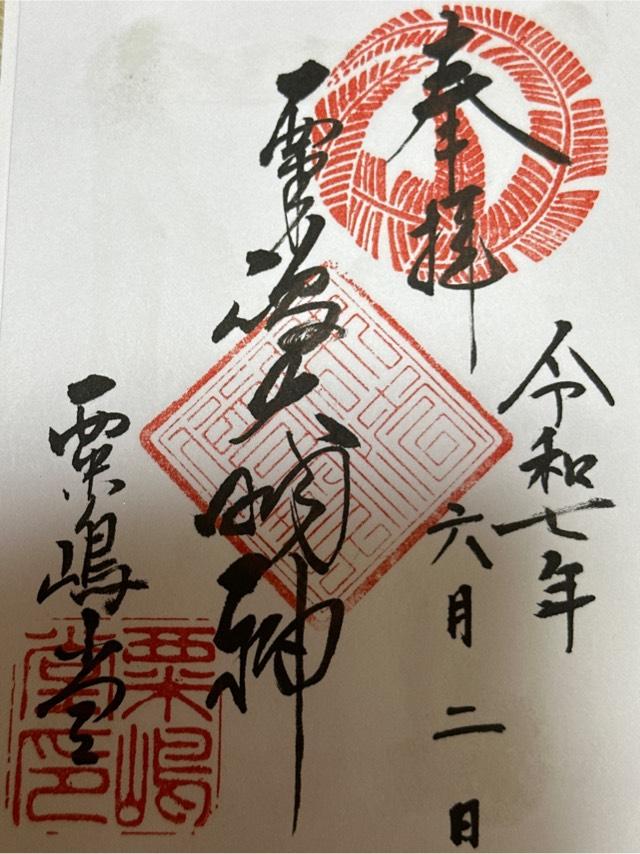 奉拝
令和七年
六月二日
明神
粟嶋堂
粟嶋
堂印